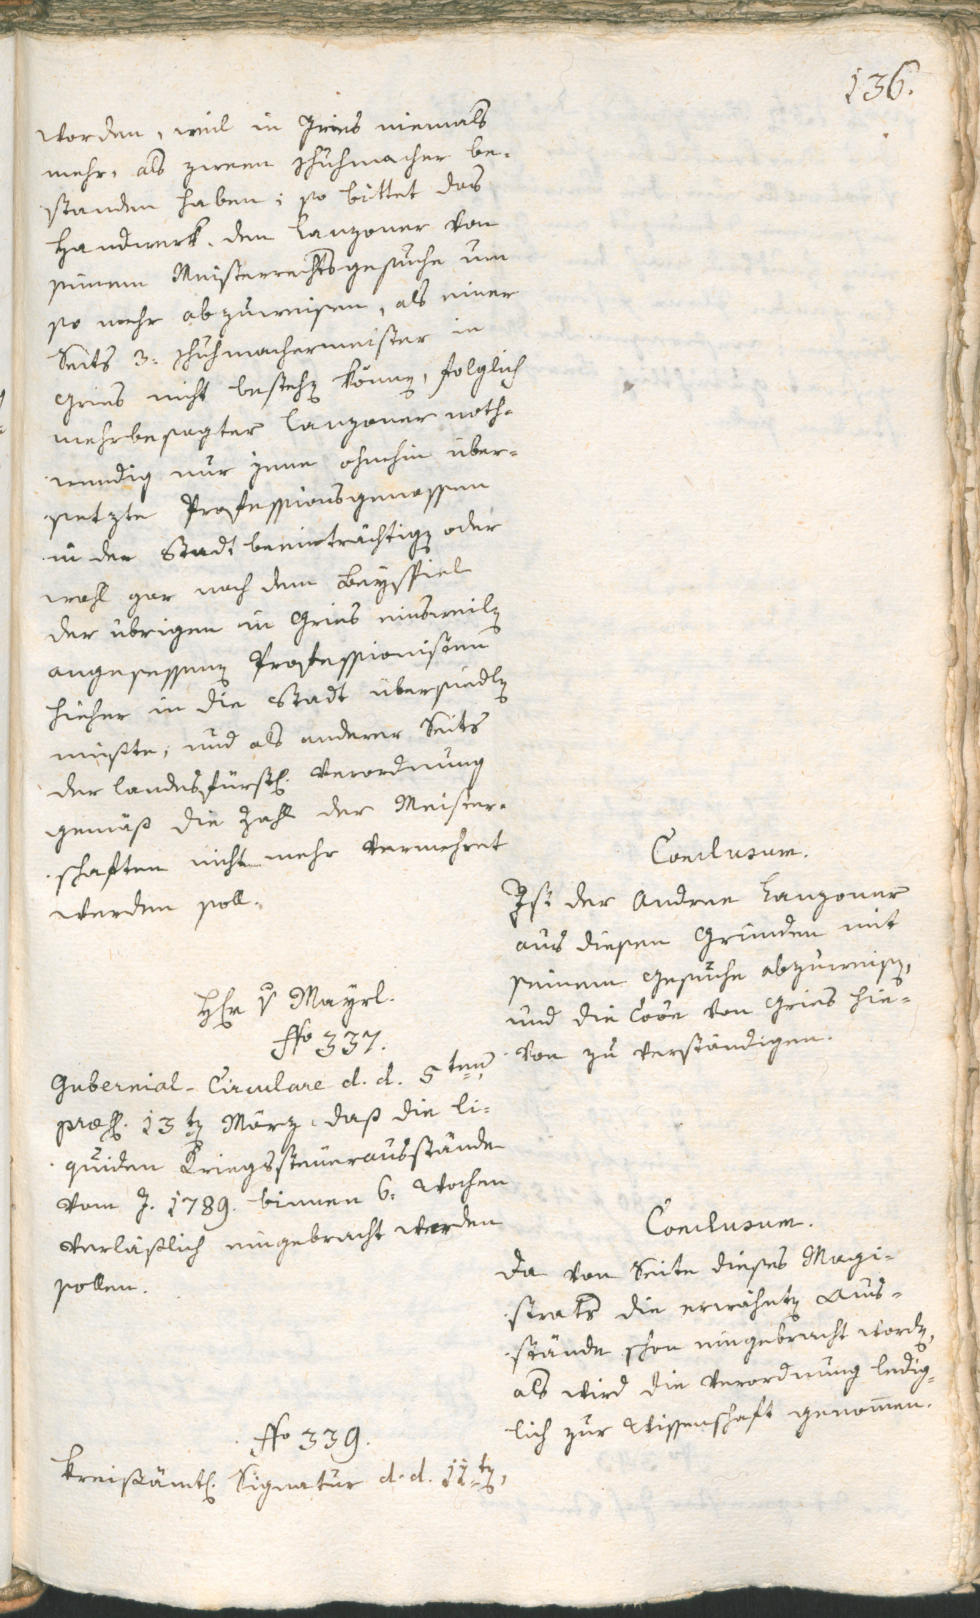 136.
worden, weil in Gries niemals
mehr, als zween Schuhmacher be-
standen haben; so bittet das
Handwerk, den Lanzoner von
seinem Meisterrechtsgesuche um
so mehr abzuweisen, als einer
Seits 3: Schuhmachermeister in
Gries nicht bestehen können, folglich
mehrbesagter Lanzoner noth-
wendig nur jene ohnehin über-
setzte Professionsgenossen
in der Stadt beeinträchtigen oder
wohl gar nach dem Beyspiel
der übrigen in Gries einsweilen
angesessenen Professionisten
hieher in die Stadt übersiedlen
müßte, und als anderer Seits
der landesfürstl. Verordnung
gemäß die Zahl der Meister-
schaften nicht mehr vermehret
werden soll.
Conclusum.
Ist der Andree Lanzoner
aus diesen Gründen mit
seinem Gesuche abzuweisen,
und die Löbe von Gries hie-
von zu verständigen.
Hr v Mayrl.
No 337.
Gubernial-Circulare d. d. 5ten
præs. 13ten März, daß die li-
quiden Kriegssteuerausstände
vom J. 1789. binnen 6: Wochen
verläßlich eingebracht werden
sollen.
Conclusum.
Da von Seite dieses Magi-
strats die erwähnten Aus-
stände schon eingebracht worden,
als wird die Verordnung ledig-
lich zur Wissenschaft genommen.
No 339.
Kreisämtl. Signatur d. d. 11ten,